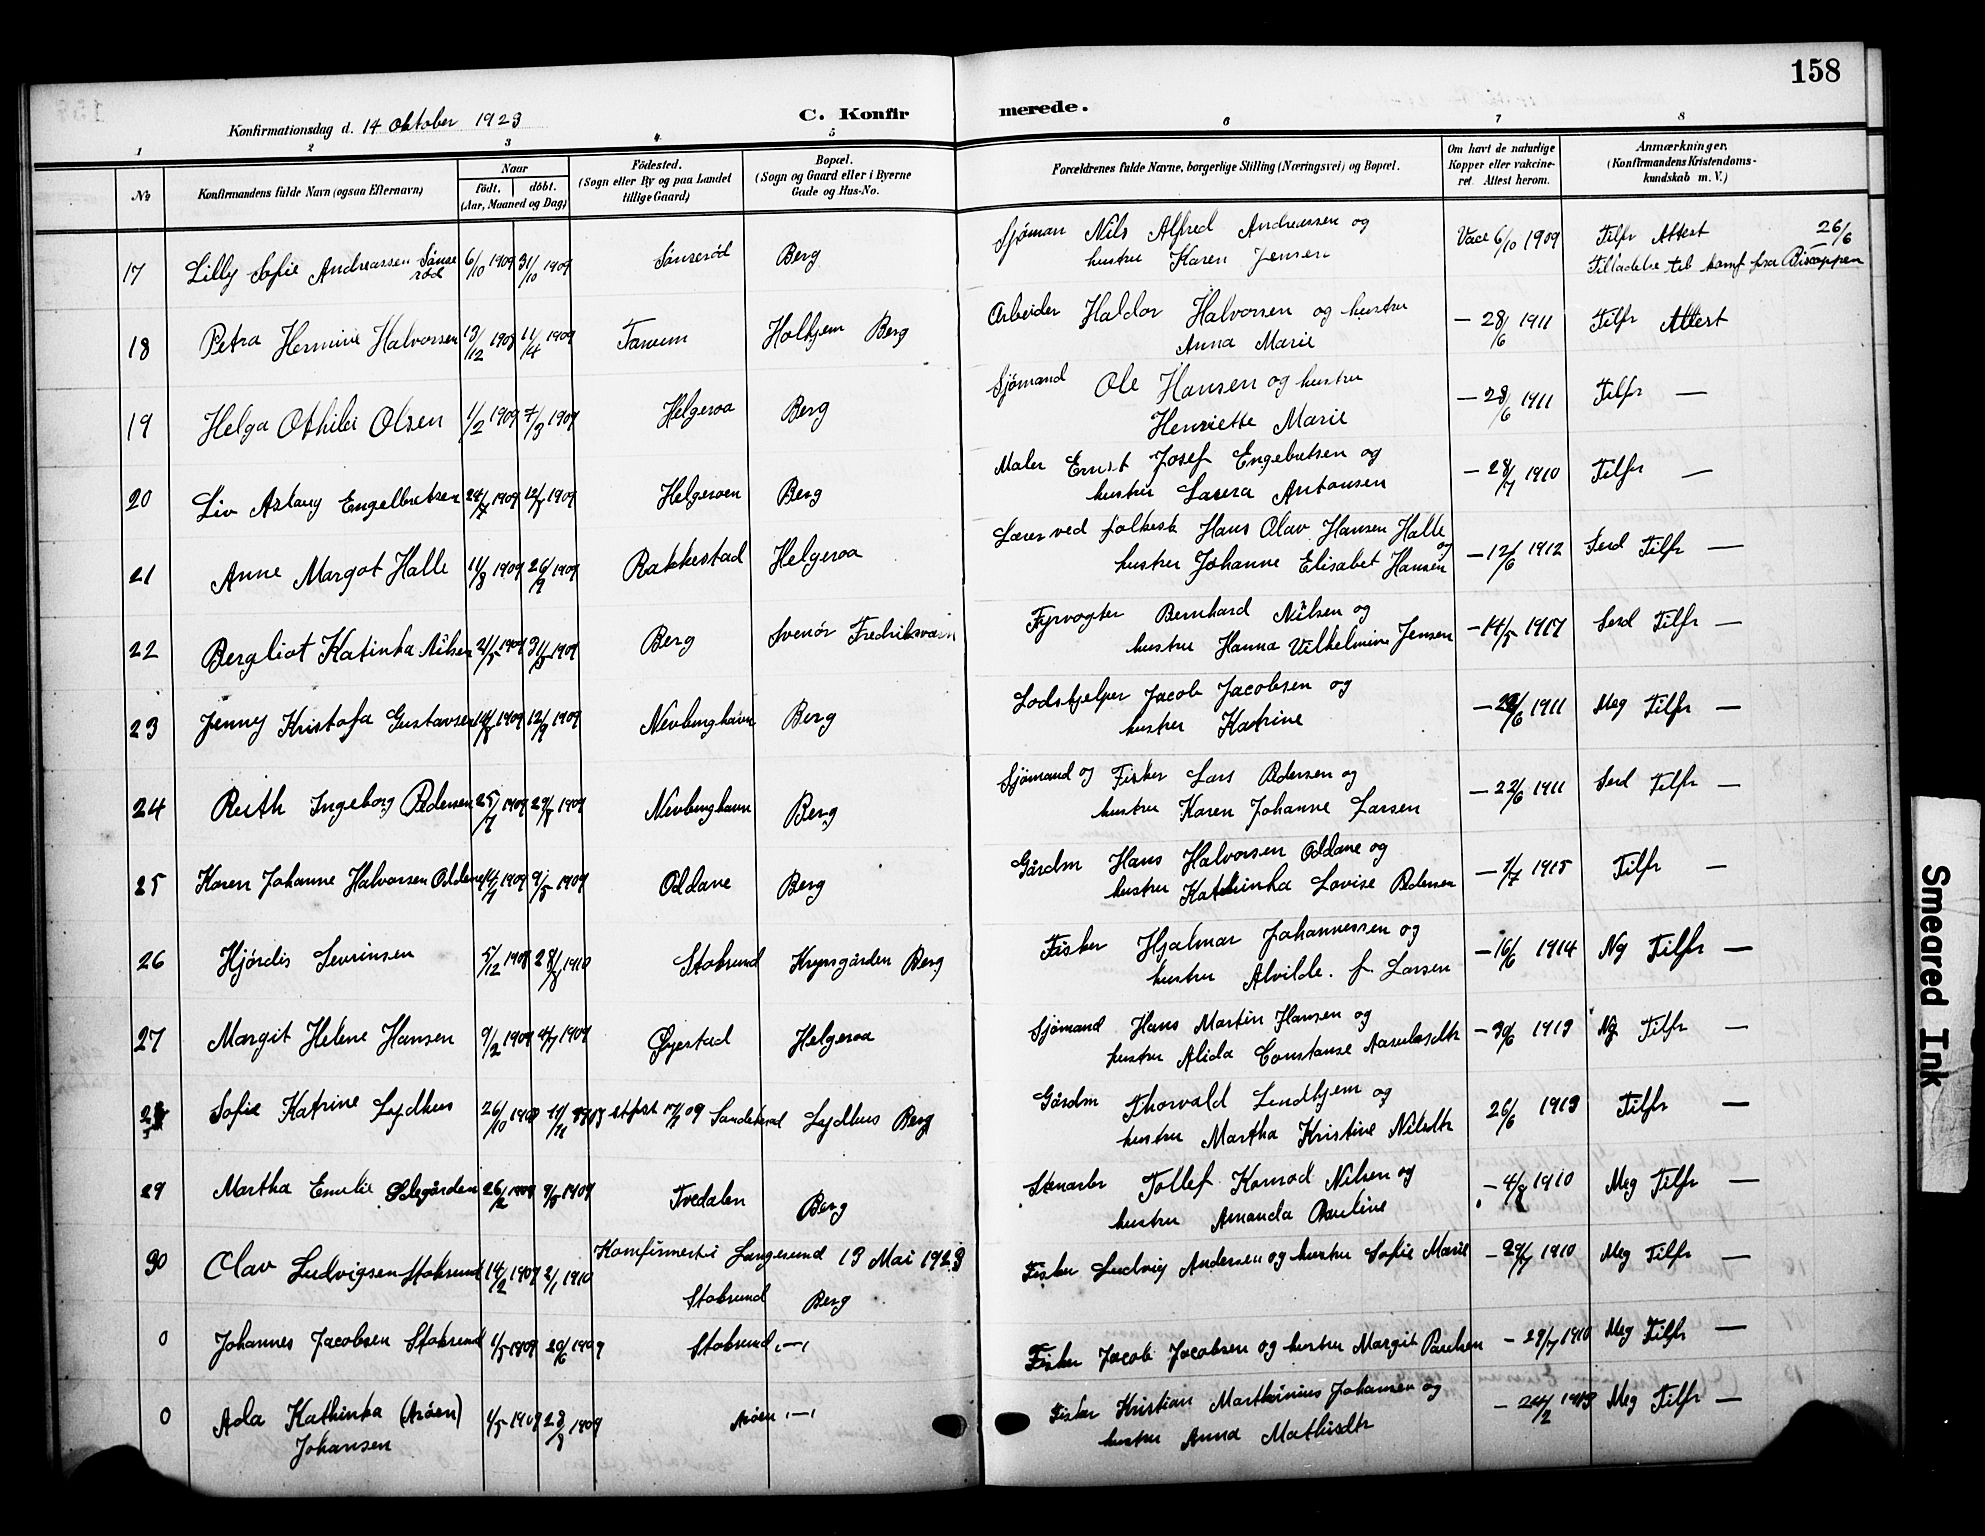 158
Konfirmationsdag d. 14 Oktober 1923
C. Konfirmerede.
1 2 3 4 5 6 7 8
No
Konfirmandens fulde Navn (ogsaa Efternavn)
Naar
født. døbt.
(Aar, Maaned og Dag)
Fødested.
(Sogn eller By og paa Landet
tillige Gaard)
Bopæl.
(Sogn og Gaard eller i Byerne
Gade og Hus-No.
Forældrenes fulde Navne, borgerlige Stilling (Næringsvei) og Bopæl.
Om havt de naturlige
Kopper eller vakcine-
ret. Attest herom.
Anmærkninger.
(Konfirmandens Kristendoms-
kundskab m. V.)
17 Lilly Sofie Andreassen 6/10 1909 31/10 1909 Berg Sjøman Nils Alfred Andreassen og Vacc 6/10 1909 Tilfr Attest 26/6
hustru Karen Jensen Tilladelse til konf fra Biscoppen
18 Petra Hermine Halvorsen 13/12 1908 11/4 1909 Tanum Holhjem Berg Arbeider Haldor Halvorsen og hustru — 28/6 1911 Tilfr Attest
Anna Marie
19 Helga Othilie Olsen 1/2 1909 7/3 1909 Helgeroa Berg Sjømand Ole Hansen og hustru — 28/6 1911 Tilfr —
Henriette Marie
20 Liv Aslaug Engelbretsen 1909 1909 Helgeroen Berg Maler Ernst Josef Engebretsen og — 28/7 1910 Tilfr —
hustru Laura Antonsen
21 Anne Margot Halle 11/8 1909 26/9 1909 Rakkestad Helgeroa Lærer ved folkesk Hans Olav Hansen Halle og — 12/6 1912 Serd Tilfr —
hustru Johanne Elisabet Hansen
22 Bergliot Katinka Nilsen 2/5 1909 31/5 1909 Berg Svenör Fredriksværn Fyrvogter Bernhard Nilsen og — 14/5 1917 Serd Tilfr —
hustru Hanna Vilhelmine Jensen
23 Jenny Kristofa Gustavsen 1909 12/9 1909 Nevlunghavn Berg Lodshjelper Jacob Jacobsen og — 1911 Meg Tilfr —
hustru Katrine
24 Ruth Ingeborg Pedersen 25/7 1909 29/8 1909 Nevlunghavn Berg Sjømand og Fisker Lars Pedersen og — 22/6 1911 Serd Tilfr —
hustru Karen Johanne Larsen
25 Karen Johanne Halvorsen Oddane 1909 9/5 1909 Oddane Berg Gårdm Hans Halvorsen Oddane og — 1/7 1915 Tilfr —
hustru Kathinka Lovise Pedersen
26 Hjördis Sevrinsen 5/12 1908 1910 Stoksund Berg Fisker Hjalmar Johannessen og — 16/6 1914 Ng Tilfr —
hustru Alvilde. f. Larsen
27 Margit Helene Hansen 9/2 1909 4/7 1909 Øyestad Helgeroa Sjømand Hans Martin Hansen og — 30/6 1913 Ng Tilfr —
hustru Alida Constanse
28 Sofie Katrine Lydhus 26/10 1908 11/11 Lydhus Berg Gårdm Thorvald Lindhjem og 26/6 1913 Tilfr —
hustru Martha Kristine Nilsdtr
29 Martha Emelie 26/2 1909 9/5 1909 Tvedalen Berg Stenarbr Tollef Konrad Nilsen og — 4/8 1910 Meg Tilfr —
hustru Amanda Pauline
Konfirmert i Langesund 13 Mai 1923
30 Olav Ludvigsen Stoksund 14/2 1909 2/1 1910 Stoksund Berg Fisker Ludvig Andersen og hustru Sofie Marie — 29/7 1910 Meg Tilfr —
0 Johannes Jacobsen Stoksund 1/5 1909 20/6 1909 Stoksund —"— Fisker Jacob Jacobsen og hustru Margit Paulsen — 29/7 1910 Meg Tilfr —
0 Ada Kathinka (Aröen) 4/5 1909 1909 Aröen —"— Fisker Kristian Marthinius Johansen og — 24/2 1913 Meg Tilfr —
Johansen hustru Anna Mathisdtr
Smeared Ink